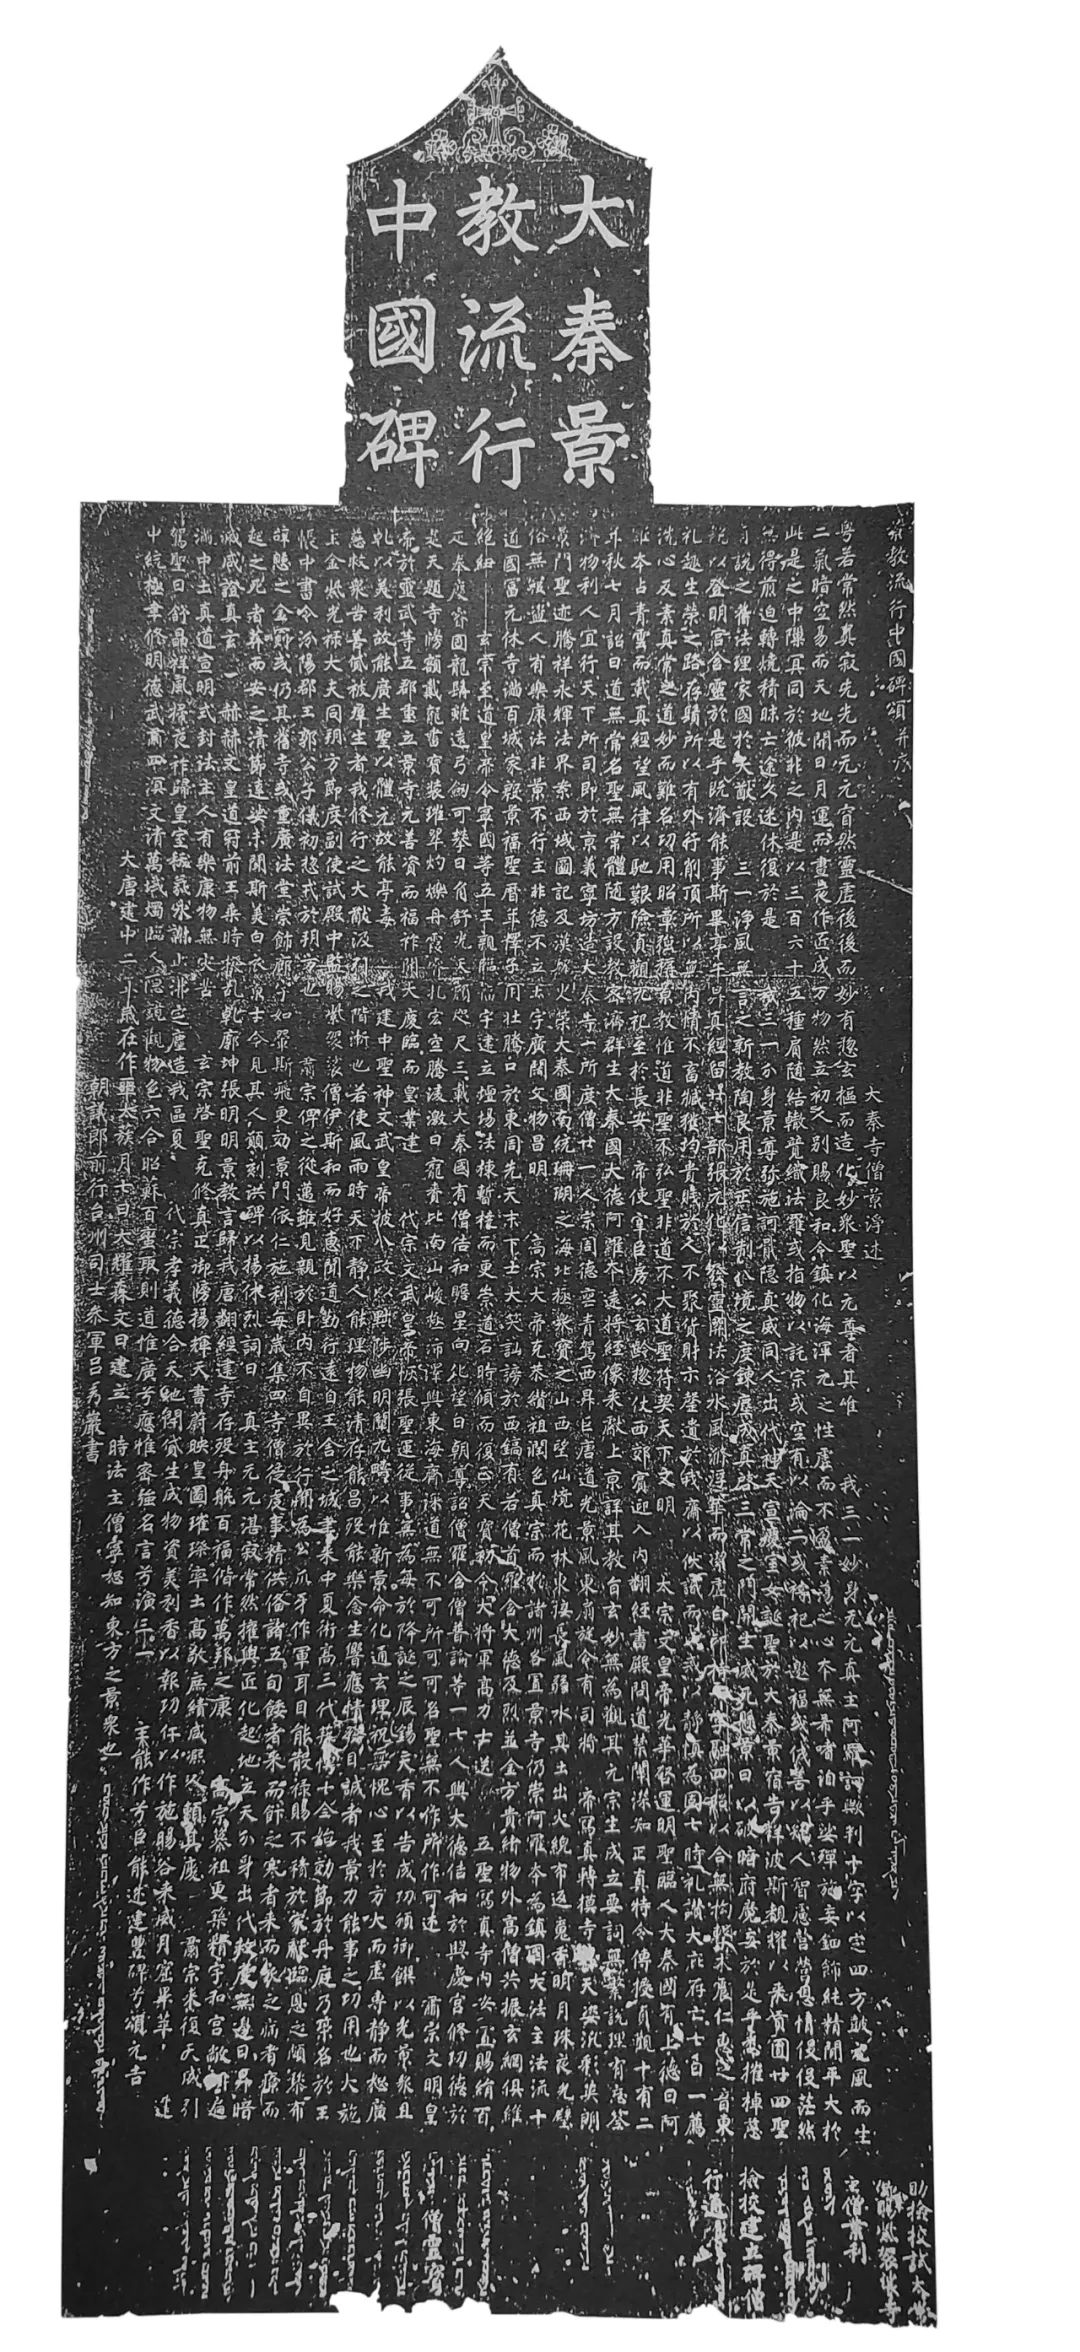 大秦景
教流行
中國碑
景教流行中國碑頌并序
大秦寺僧景淨述
粵若常然真寂先先而无元窅然靈虛後後而妙有惣玄樞而造化妙眾聖以元尊者其唯 我三一妙身无元真主阿羅訶歟判十字以定四方鼓元風而生
二氣暗空易而天地開日月運而晝夜作匠成万物然立初人別賜良和令鎮化海渾元之性虛而不盈素蕩之心本無希嗜洎乎娑殫施妄鈿飾純精閒平大於
此是之中隟冥同於彼非之內是以三百六十五種肩隨結轍競織法羅或指物以託宗或空有以淪二或禱祀以邀福或伐善以矯人智慮營營恩情役役茫然
無得煎迫轉燒積昧亡途久迷休復於是 我三一分身景尊彌施訶戢隱真威同人出代神天宣慶室女誕聖於大秦景宿告祥波斯覩耀以來貢圓廿四聖
有說之舊法理家國於大猷設 三一淨風無言之新教陶良用於正信制八境之度鍊塵成真啓三常之門開生滅死懸景日以破暗府魔妄於是乎悉摧棹慈
航以登明宮含靈於是乎既濟能事斯畢亭午昇真經留廿七部張元化以發靈關法浴水風滌浮華而潔虛白印持十字融四照以合無拘擊木震仁惠之音東
礼趣生榮之路存鬚所以有外行削頂所以無內情不畜臧獲均貴賤於人不聚貨財示罄遺於我齋以伏識而成戒以靜慎為固七時礼讚大庇存亡七日一薦
洗心反素真常之道妙而難名功用昭彰強稱景教惟道非聖不弘聖非道不大道聖符契天下文明 太宗文皇帝光華啓運明聖臨人大秦國有上德曰阿
羅本占青雲而載真經望風律以馳艱險貞觀九祀至於長安 帝使宰臣房公玄齡惣仗西郊賓迎入內翻經書殿問道禁闈深知正真特令傳授貞觀十有二
年秋七月詔曰道無常名聖無常體隨方設教密濟群生大秦國大德阿羅本遠將經像來獻上京詳其教旨玄妙無為觀其元宗生成立要詞無繁說理有忘筌
濟物利人宜行天下所司即於京義寧坊造大秦寺一所度僧廿一人宗周德喪青駕西昇巨唐道光景風東扇旋令有司將 帝寫真轉摸寺壁天姿汎彩英朗
景門聖迹騰祥永輝法界案西域圖記及漢魏史策大秦國南統珊瑚之海北極眾寶之山西望仙境花林東接長風弱水其土出火綄布返魂香明月珠夜光璧
俗無寇盜人有樂康法非景不行主非德不立土宇廣闊文物昌明 高宗大帝克恭纘祖潤色真宗而於諸州各置景寺仍崇阿羅本為鎮國大法主法流十
道國富元休寺滿百城家殷景福聖曆年釋子用壯騰口於東周先天末下士大笑訕謗於西鎬有若僧首羅含大德及烈並金方貴緒物外高僧共振玄網俱維
絕紐 玄宗至道皇帝令寧國等五王親臨福宇建立壇場法棟暫橈而更崇道石時傾而復正天寶初令大將軍高力士送 五聖寫真寺內安置賜絹百
疋奉慶睿圖龍髯雖遠弓劒可攀日角舒光天顏咫尺三載大秦國有僧佶和瞻星向化望日朝尊詔僧羅含僧普論等一七人與大德佶和於興慶宮修功德於
是天題寺牓額戴龍書寶裝璀翠灼爍丹霞睿扎宏空騰淩激日寵賚比南山峻極沛澤與東海齊深道無不可所可可名聖無不作所作可述 肅宗文明皇
帝於靈武等五郡重立景寺元善資而福祚開大慶臨而皇業建 代宗文武皇帝恢張聖運從事無為每於降誕之辰錫天香以告成功頒御饌以光景眾且
乹以美利故能廣生聖以體元故能亭毒 我建中聖神文武皇帝披八政以黜陟幽明闡九疇以惟新景命化通玄理祝無愧心至於方大而虛專靜而恕廣
慈救眾苦善貸被群生者我修行之大猷汲引之階漸也若使風雨時天下靜人能理物能清存能昌歿能樂念生響應情發目誠者我景力能事之功用也大施
主金紫光祿大夫同朔方節度副使試殿中監賜紫袈裟僧伊斯和而好惠聞道勤行遠自王舍之城聿來中夏術高三代藝博十全始効節於丹庭乃策名於王
帳中書令汾陽郡王郭公子儀初惣戎於朔方也 肅宗俾之從邁雖見親於臥內不自異於行間為公爪牙作軍耳目能散祿賜不積於家獻臨恩之頗黎布
辭憩之金罽或仍其舊寺或重廣法堂崇飾廊宇如翬斯飛更効景門依仁施利每歲集四寺僧徒虔事精供俻諸五旬餧者來而飰之寒者來而衣之病者療而
起之死者葬而安之清節達娑未聞斯美白衣景士今見其人願刻洪碑以揚休烈詞曰 真主元元湛寂常然權輿匠化起地立天分身出代救度無邊日昇暗
滅咸證真玄 赫赫文皇道冠前王乘時撥乱乹廓坤張明明景教言歸我唐翻經建寺存歿舟航百福偕作萬邦之康 高宗纂祖更築精宇和宮敞朗遍
滿中土真道宣明式封法主人有樂康物無災苦 玄宗啓聖克修真正御牓揚輝天書蔚映皇圖璀璨率土高敬庶績咸熙人賴其慶 肅宗來復天威引
駕聖日舒晶祥風掃夜祚歸皇室祅氛永謝止沸定塵造我區夏 代宗孝義德合天地開貸生成物資美利香以報功仁以作施暘谷來威月窟畢萃 建
中統極聿修明德武肅四溟文清萬域燭臨人隱鏡觀物色六合昭蘇百蠻取則道惟廣兮應惟密強名言兮演三一 主能作兮臣能述建豐碑兮頌元吉
大唐建中二年歲在作噩太蔟月七日大耀森文日建立 時法主僧寧恕知東方之景眾也
朝議郎前行台州司士參軍呂秀巖書
助檢校試太常
卿賜紫袈裟寺
主僧業利
檢校建立碑僧
行通
僧靈寶